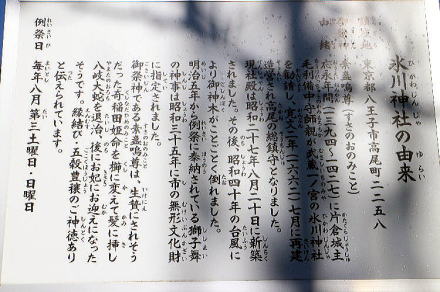 氷川神社の由来
鎮座地 東京都八王子市高尾町二二五八
素盞嗚尊(すさのおのみこと)
由緒 応永年間(一三九四~一四二七)に片倉城主
毛利備中守師親が武蔵一ノ宮の氷川神社
を勧請し、寛文二年(一六六二)七月に再建
造営され高尾の総鎮守となりました。
現社殿は昭和二十七年八月二十日に新築
されました。その後、昭和四十年の台風に
より御神木がことごとく倒れました。
明治五年から例祭に奉納されている獅子舞
の神事は昭和三十五年に市の無形文化財
に指定されました。
御祭神である素盞嗚尊は、生贄にされそう
だった奇稲田姫命を櫛に変えて髪に挿し
八岐大蛇を退治、後にお妃にお迎えになった
そうです。縁結び・五穀豊穣のご神徳あり
と伝えられています。
例祭日 毎年八月第三土曜日・日曜日